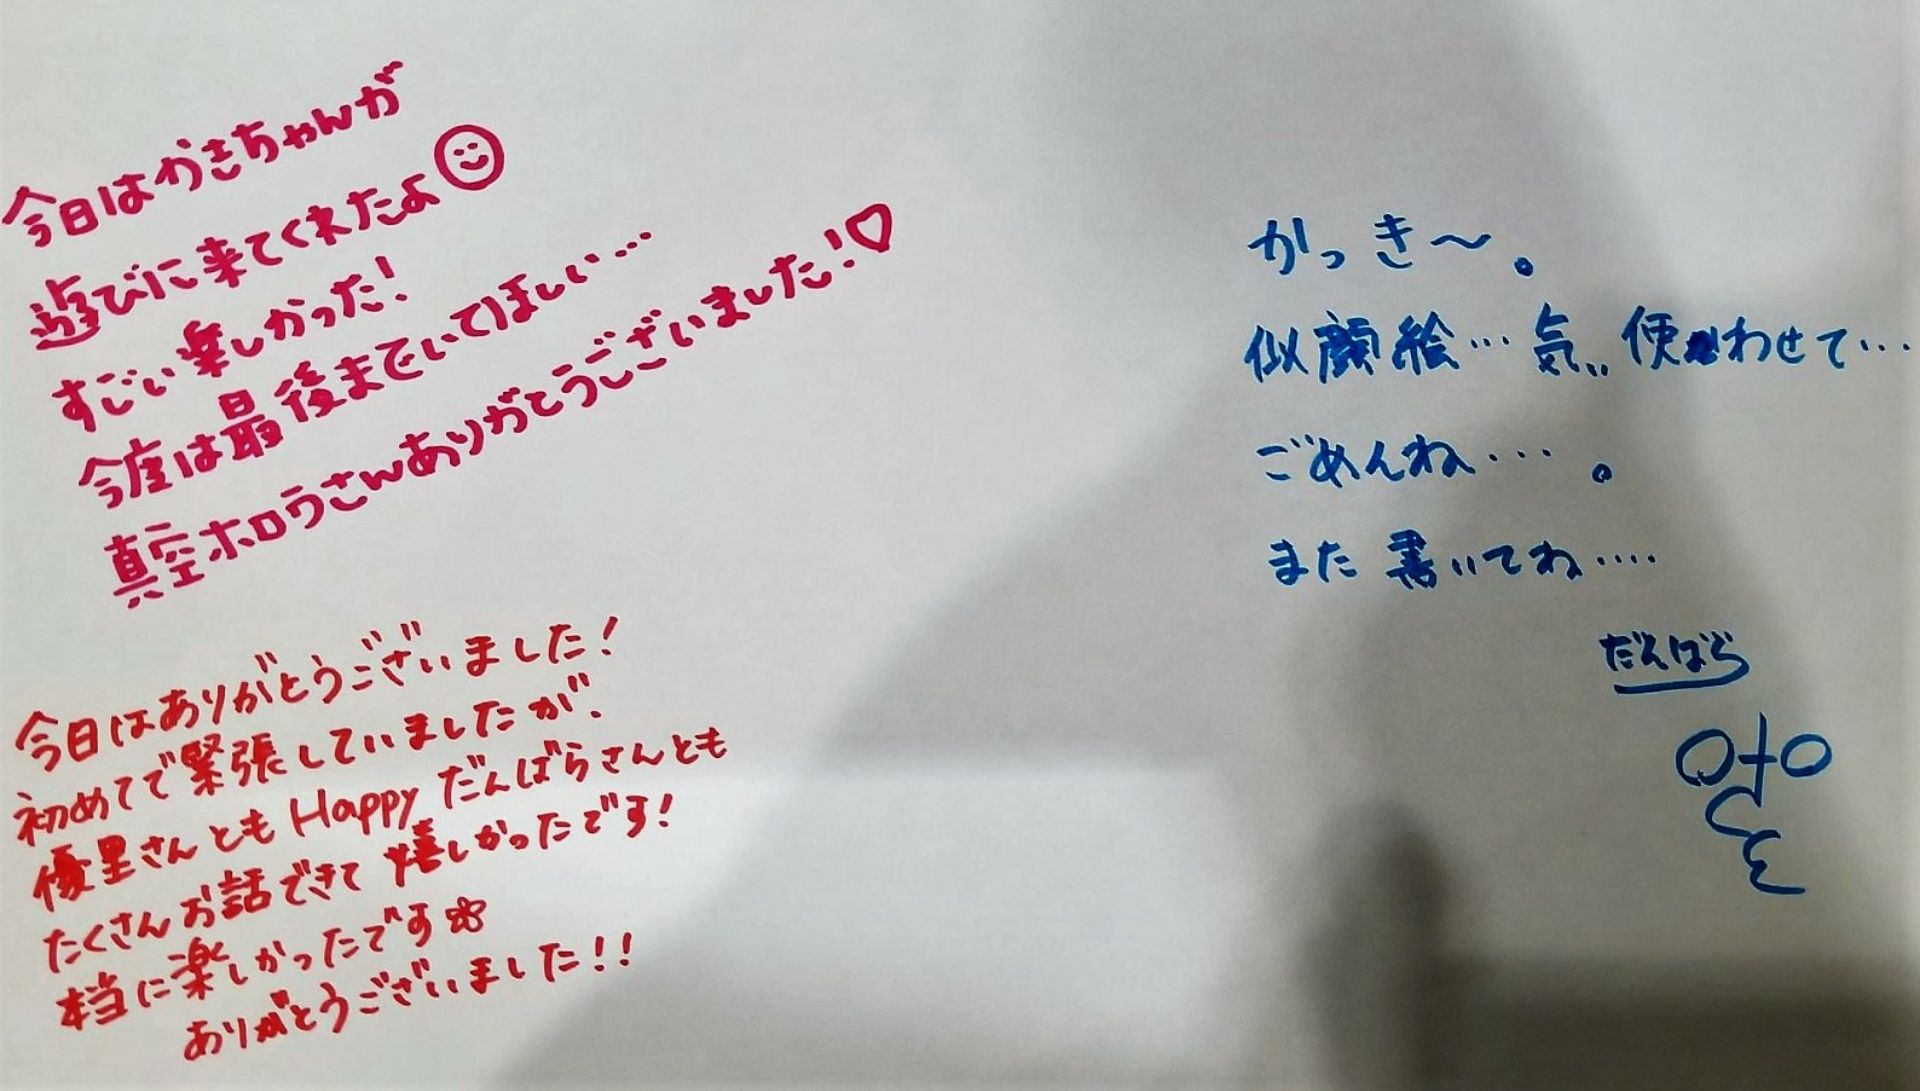 今日はかきちゃんが
遊びに来てくれたよ
すごい楽しかった!
今度は最後までいてほしい…
真空ホロウさんありがとうございました!♡
今日はありがとうございました!
初めてで緊張していましたが、
優里さんとも Happy だんばらさんとも
たくさんお話できて 嬉しかったです!
本当に楽しかったです
ありがとうございました!!
かっき〜。
似顔絵…気.. 使わせて…
ごめんね…。
また 書いてね….
だんばら